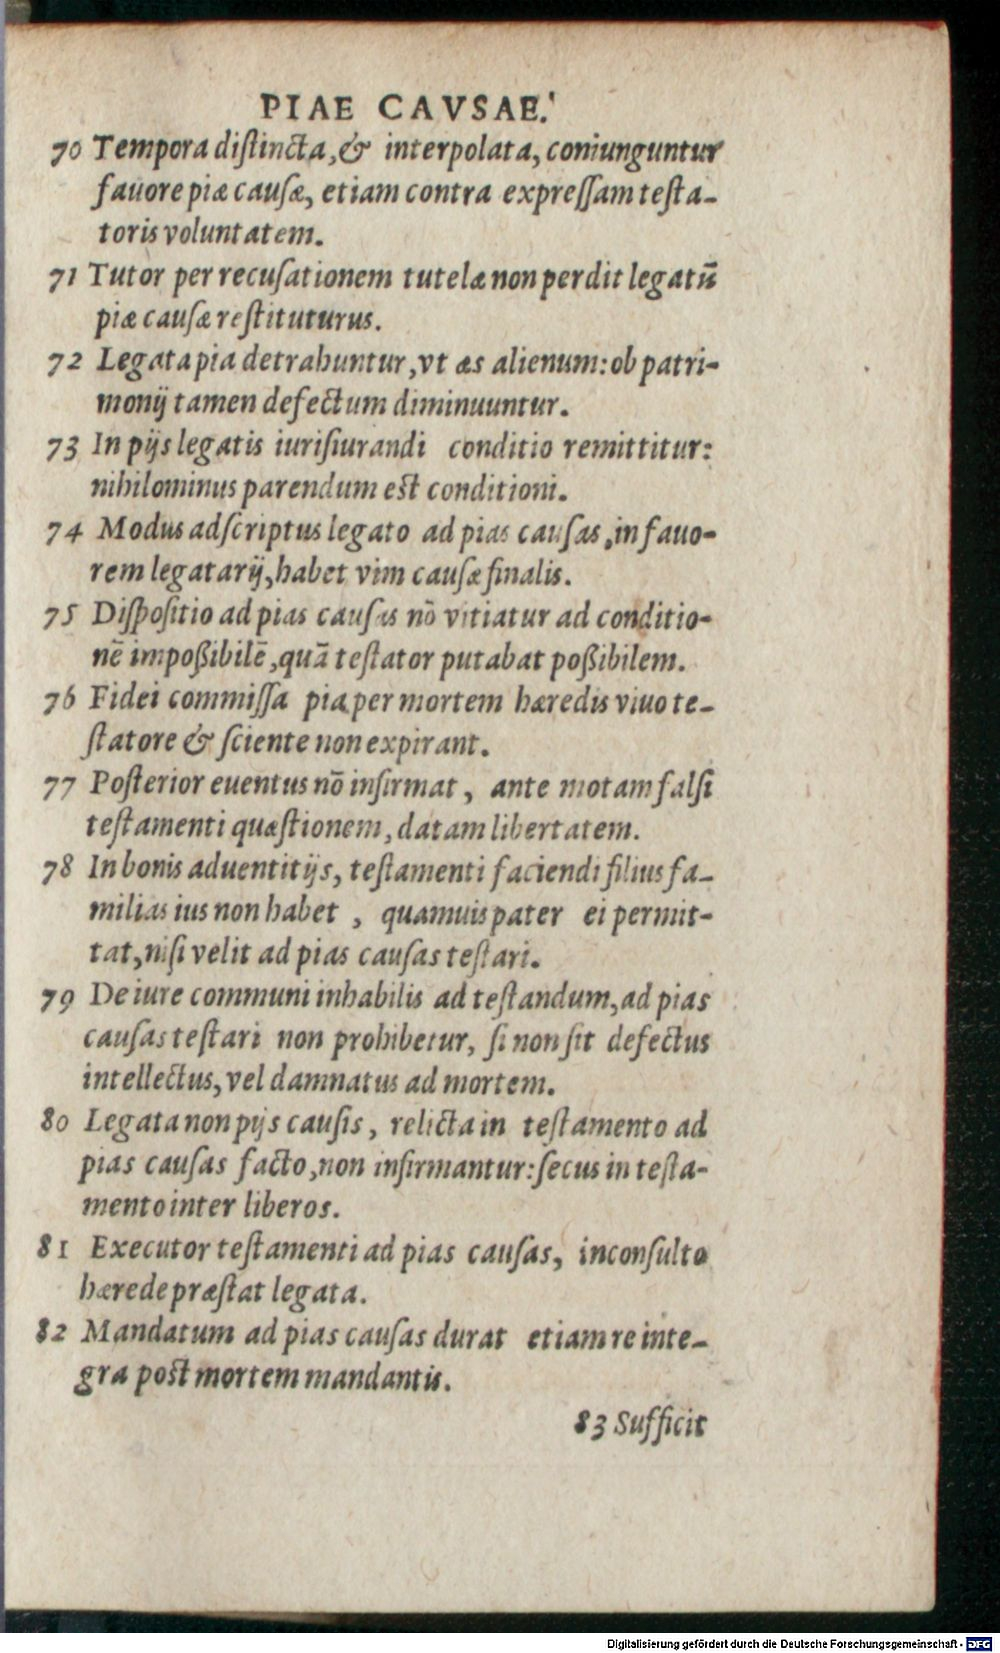 PIAE CAVSAE.
70 Tempora distincta, & interpolata, coniunguntur
fauore piæ causæ, etiam contra expressam testa-
toris voluntatem.
71 Tutor per recusationem tutelæ non perdit legatū
piæ causæ restituturus.
72 Legata pia detrahuntur, vt æs alienum: ob patri-
monij tamen defectum diminuuntur.
73 In pijs legatis iurisiurandi conditio remittitur:
nihilominus parendum est conditioni.
74 Modus adscriptus legato ad pias causas, in fauo-
rem legatarij, habet vim causæ finalis.
75 Dispositio ad pias causas nō vitiatur ad conditio-
nē impoßibilē, quā testator putabat poßibilem.
76 Fidei commissa pia per mortem hæredis viuo te-
statore & sciente non expirant.
77 Posterior euentus nō infirmat, ante motam falsi
testamenti quæstionem, datam libertatem.
78 In bonis aduentitijs, testamenti faciendi filius fa-
milias ius non habet, quamuis pater ei permit-
tat, nisi velit ad pias causas testari.
79 De iure communi inhabilis ad testandum, ad pias
causas testari non prohibetur, si non sit defectus
intellectus, vel damnatus ad mortem.
80 Legata non pijs causis, relicta in testamento ad
pias causas facto, non infirmantur: secus in testa-
mento inter liberos.
81 Executor testamenti ad pias causas, inconsulto
hærede præstat legata.
82 Mandatum ad pias causas durat etiam re inte-
gra post mortem mandantis.
83 Sufficit
Digitalisierung gefördert durch die Deutsche Forschungsgemeinschaft - DFG